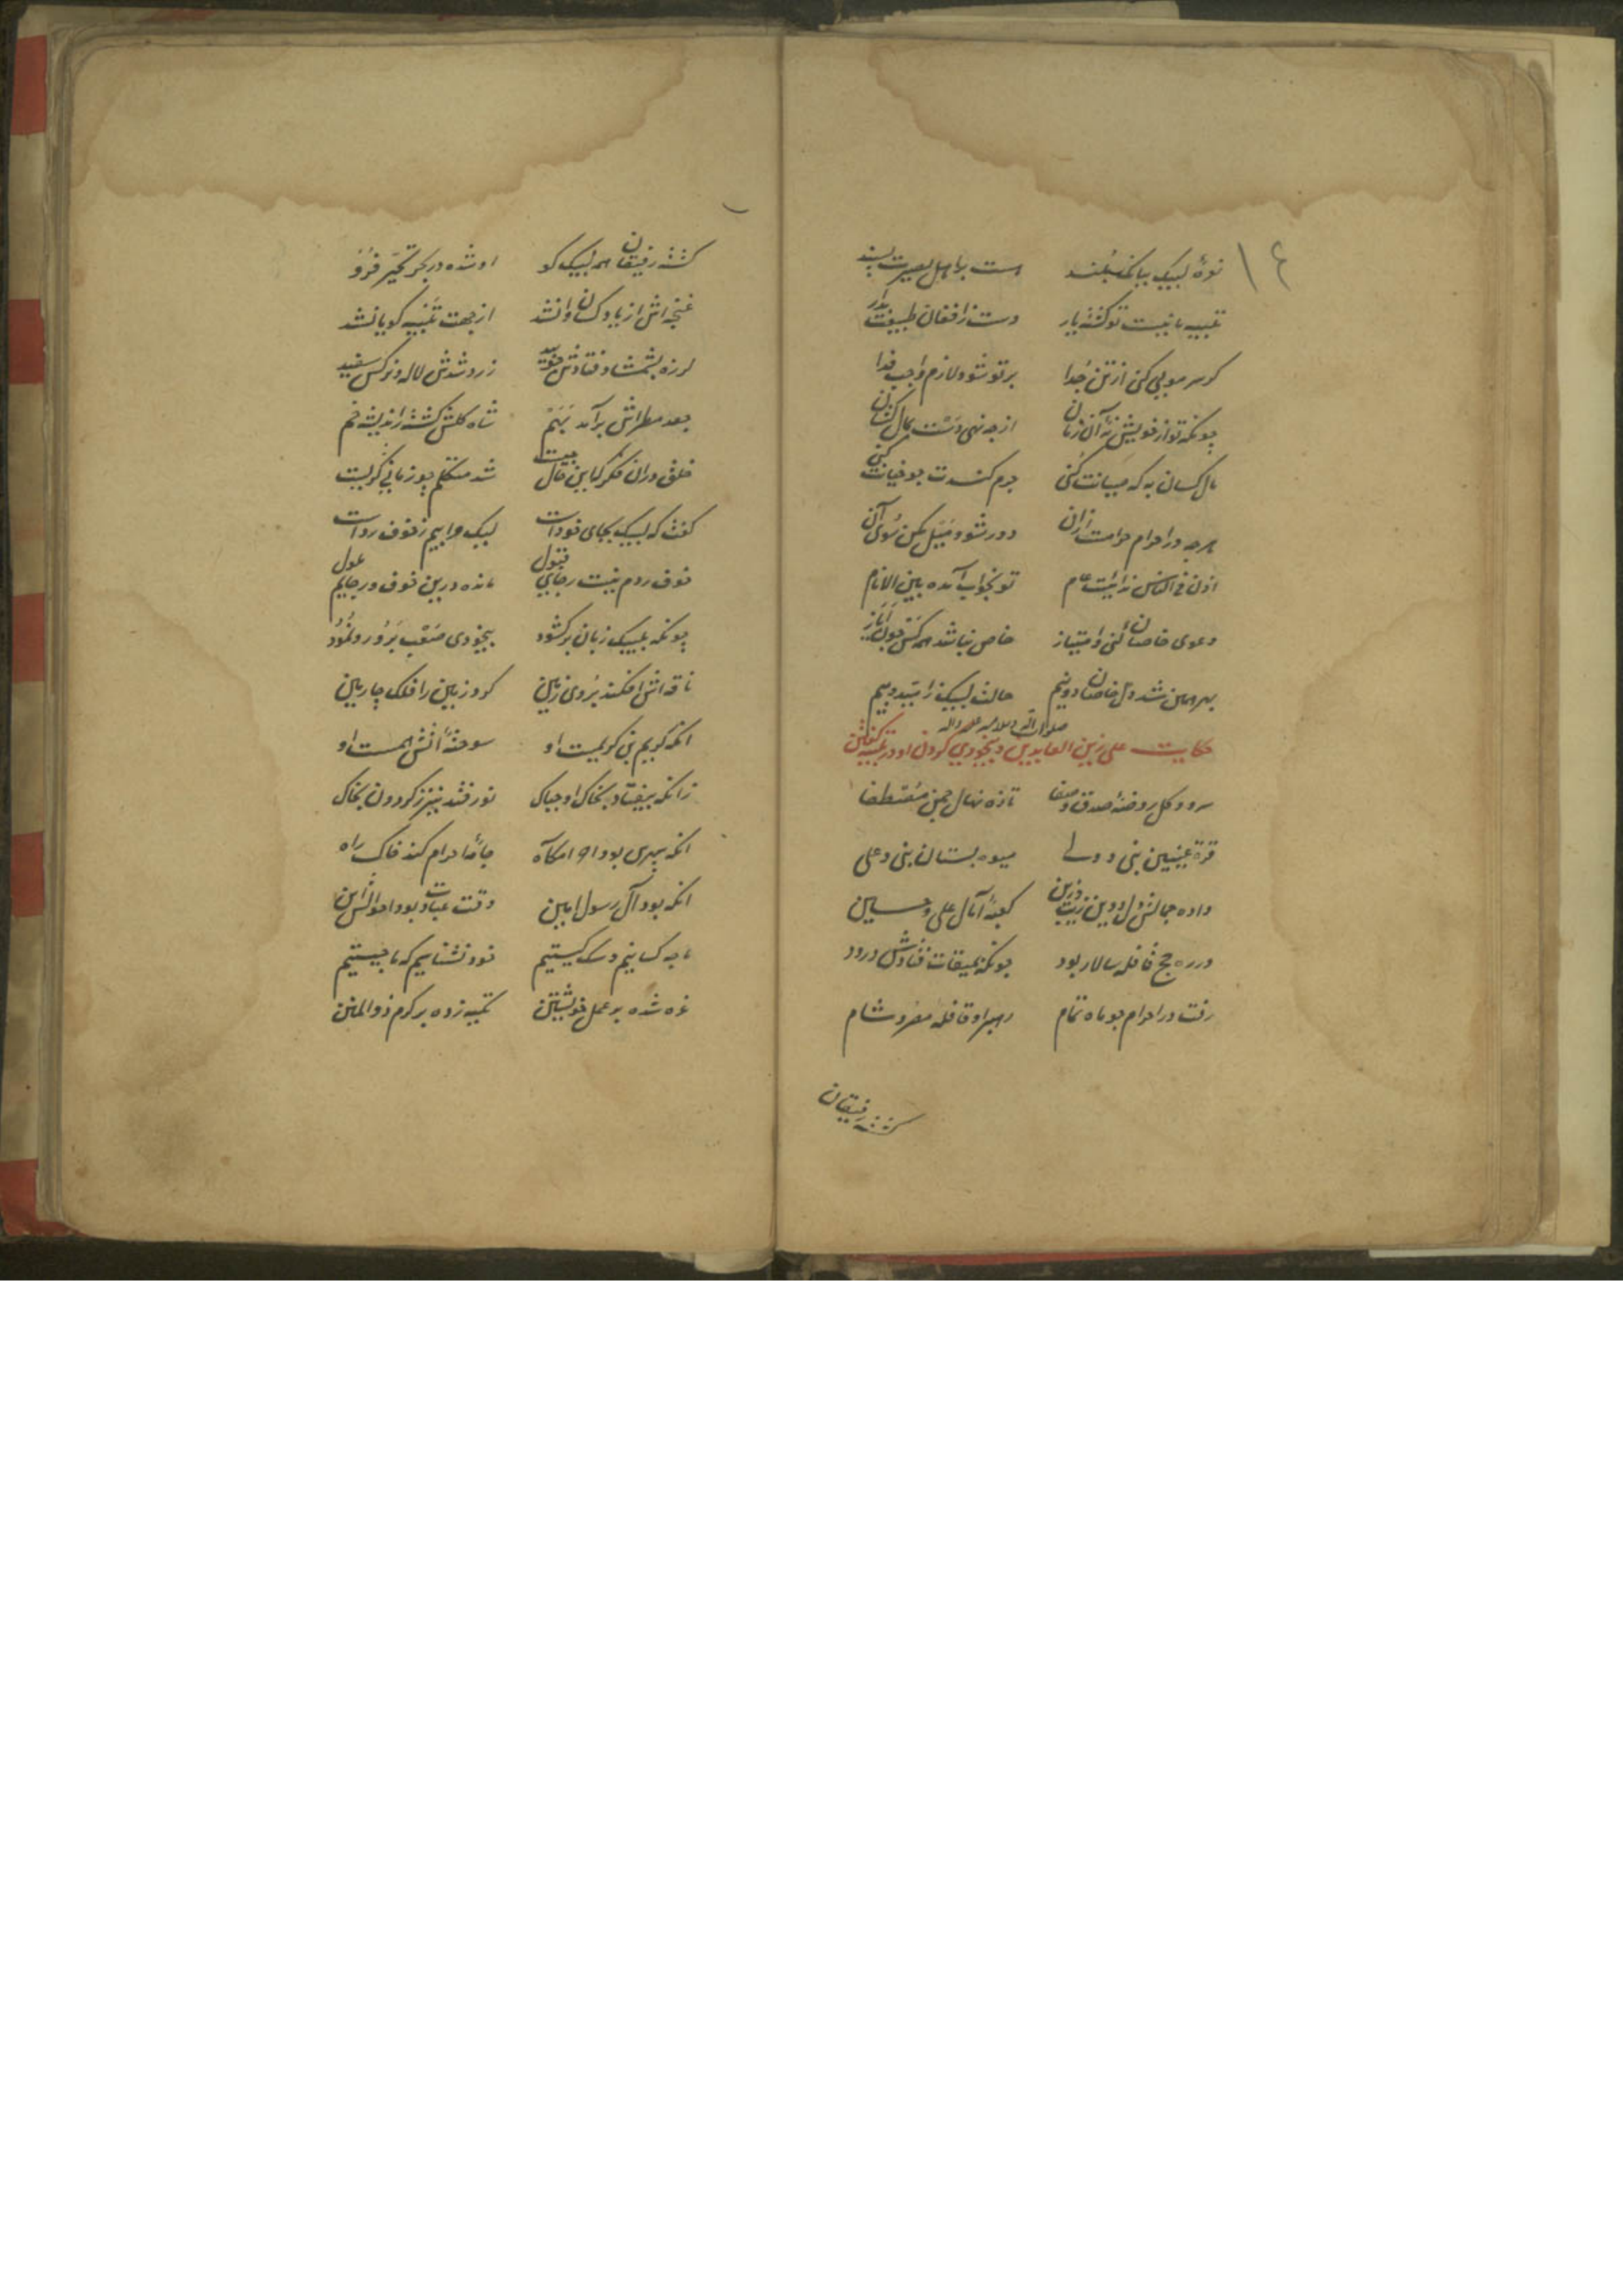 ١٤
نعرهٔ لبیک ببانگ بلند هست بر اهل بصیرت پسند
تلبیه نیست تو کشته یار دست ز افغان طبیعت بدار
کر سر مویی کنی از تن جدا بر تو شود لازم و واجب فدا
چونکه تو از خویش نهٔ آن زمان از چه نهی دست بمال کسان
مال کسان به که صیانت کنی جرم کشدت چو خیانت کنی
هرچه در احرام حرامست از آن دور شو و میل مکن سوی آن
اذن فی الناس ندائیست عام تو بجواب آمده بین الانام
دعوی خاصان کنی و امتیاز خاص نباشد همه کس چون ایاز
بهر همین شد دل خاصان دو نیم حالت لبیک ز امید و بیم
حکایت علی زین العابدین صلوات الله و سلامه علیه و اله و بیخودی کردن او در تلبیه کفتن
سرو و کل روضهٔ صدق و صفا تازه نهال چمن مصطفا
قرة عینین نبی و ولی میوه بستان نبی و علی
داده جمالش دل و دین زیب و زین کعبهٔ آمال علی و حسین
در ره حج قافله سالار بود چونکه بمیقات فتادش ورود
رفت در احرام چو ماه تمام رهبر او قافلهٔ مصر و شام
کشته رفیقان
کشته رفیقان همه لبیک کو او شده در بحر تحیر فرو
غنچه اش از باد کسان وا نشد از جهت تلبیه کویا نشد
لرزه بشمشاد فتادش چو بید زرد شدش لاله و نرکس سفید
جعد مطراش برآمد بهم شاه کلش کشته ز اندیشه خم
خلق در آن فکر کاین حال چیست شد متکلم چو زمانی کریست
کفت که لبیک بجای خودست لیک مرا بیم ز خوف ردست
خوف ردم نیست رجای قبول مانده درین خوف و رجایم عول
چونکه بلبیک زبان برکشود بیخودی صعب برو رو نمود
ناقه اش افکند بروی زمین کرد زمین را فلک چارمین
انکه کریم بن کریمست او سوختهٔ آتش بیمست او
زانکه بیفتاد بخاک او چه باک نور فتد نیز ز کردون بخاک
انکه سپهری بود او را مکاه جامهٔ احرام کند خاک راه
انکه بود آل رسول امین وقت عبادت بود احوالش این
ما چه کسانیم و سک کیستیم خود نشناسیم که ما چیستیم
غره شده بر عمل خویشتن تکیه زده بر کرم ذو المنن